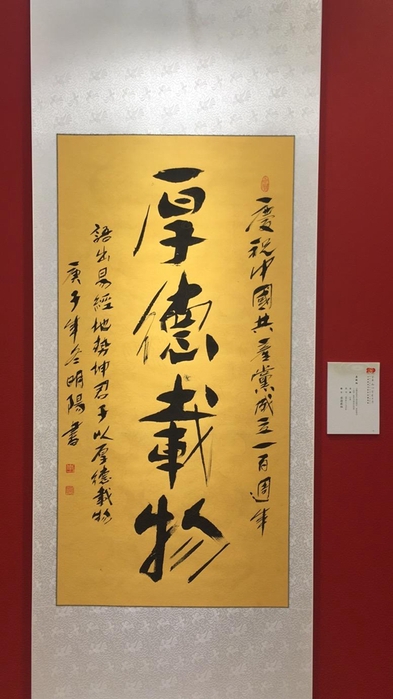 慶祝中國共產黨成立一百週年
厚德載物
語出易經地勢坤君子以厚德載物
庚子年冬明陽書